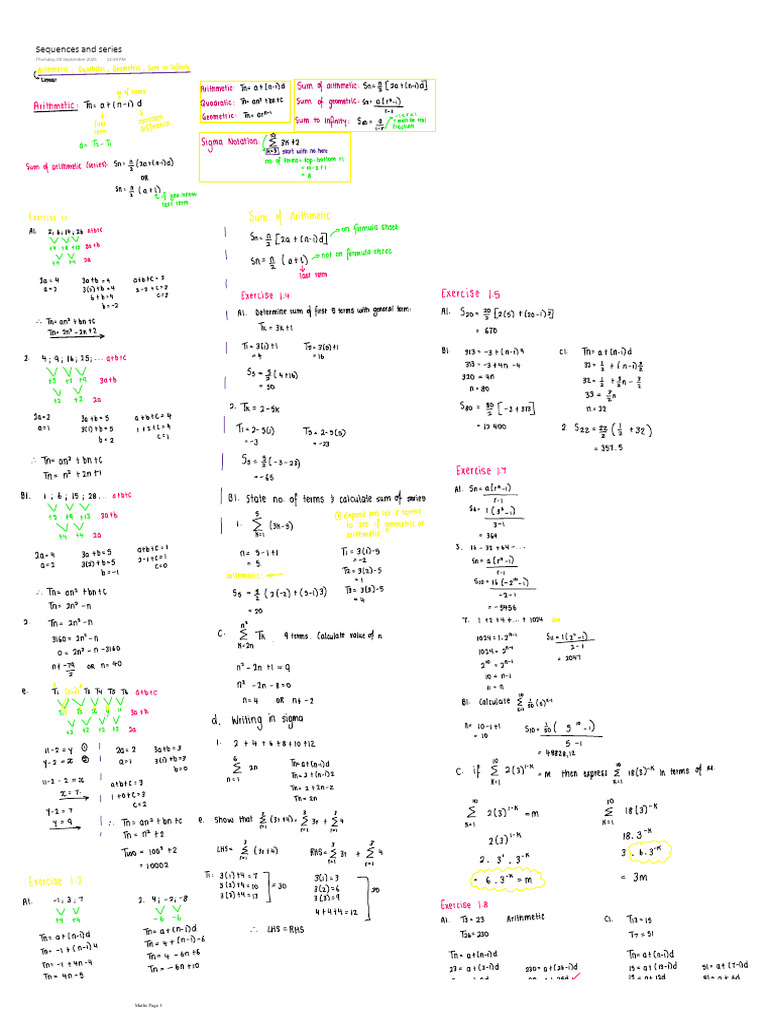 Sequences and series
Thursday, 04 September 2025 12:59 PM
Arithmetic, Quadratic, Geometric, sum to infinity
Linear
no of terms
Arithmetic: Tn = a + (n-1) d
first term
constant difference
d = T2 - T1
Sum of arithmetic (series): Sn = n/2 (2a + (n-1)d)
OR
Sn = n/2 (a + l)
if you know last term
Arithmetic: Tn = a + (n-1)d
Quadratic: Tn = an² + bn + c
Geometric: Tn = ar^n-1
Sum of arithmetic: Sn = n/2 [2a + (n-1)d]
Sum of geometric: Sn = a(r^n - 1)/r-1
Sum to infinity: S∞ = a/1-r
Sigma Notation: 10 Σ 3k+2
k=3 start with no here
no of terms = top - bottom + 1
= 10 - 3 + 1
= 8
Exercise 1.1
A1. 2; 6; 14; 26 a+b+c
+4 +8 +12 3a+b
+4 +4 2a
2a = 4 3a+b = 4 a+b+c = 2
a = 2 3(2)+b = 4 2-2+c = 2
6+b = 4 c = 2
b = -2
∴ Tn = an² + bn + c
Tn = 2n² - 2n + 2
2. 4; 9; 16; 25; ... a+b+c
+5 +7 +9 3a+b
+2 +2 2a
2a = 2 3a+b = 5 a+b+c = 4
a = 1 3(1)+b = 5 1+2+c = 4
b = 2 c = 1
∴ Tn = an² + bn + c
Tn = n² + 2n + 1
B1. 1; 6; 15; 28 ... a+b+c
+5 +9 +13 3a+b
+4 +4 2a
2a = 4 3a+b = 5 a+b+c = 1
a = 2 3(2)+b = 5 2-1+c = 1
b = -1 c = 0
∴ Tn = an² + bn + c
Tn = 2n² - n
2. Tn = 2n² - n
3160 = 2n² - n
0 = 2n² - n - 3160
n ≠ -79/2 OR n = 40
e. T3 T4 T5 T6 a+b+c
3a+b
+2 +2 +2 +2 2a
11 - 2 = y ①
y - 2 = x ②
11 - 2 - 2 = x
x = 7
y - 2 = 7
y = 9
2a = 2 3a+b = 3
a = 1 3(1)+b = 3
b = 0
a+b+c = 3
1+0+c = 3
c = 2
∴ Tn = an² + bn + c
Tn = n² + 2
T100 = 100² + 2
= 10002
Exercise 1.2
A1. -1; 3; 7
+4 +4
Tn = a + (n-1)d
Tn = -1 + (n-1)4
Tn = -1 + 4n - 4
Tn = 4n - 5
2. 4; -2; -8
-6 -6
Tn = a + (n-1)d
Tn = 4 + (n-1)-6
Tn = 4 - 6n + 6
Tn = -6n + 10
Sum of Arithmetic
Sn = n/2 [2a + (n-1)d] → on formula sheet
Sn = n/2 (a + l) → not on formula sheet
last term
Exercise 1.4
A1. Determine sum of first 5 terms with general term:
Tk = 3k + 1
T1 = 3(1)+1 T5 = 3(5)+1
= 4 = 16
S5 = 5/2 (4+16)
= 50
2. Tk = 2 - 5k
T1 = 2 - 5(1) T5 = 2 - 5(5)
= -3 = -23
S5 = 5/2 (-3-23)
= -65
B1. State no. of terms & calculate sum of series
1. 5 Σ k=1 (3k-5)
n = 5 - 1 + 1
= 5
T1 = 3(1)-5
= -2
T2 = 3(2)-5
= 1
T3 = 3(3)-5
= 4
arithmetic
S5 = 5/2 (2(-2) + (5-1)3)
= 20
C. n² Σ k=2n Tk 9 terms. Calculate value of n
n² - 2n + 1 = 9
n² - 2n - 8 = 0
n = 4 OR n ≠ -2
d. Writing in sigma
1. 2 + 4 + 6 + 8 + 10 + 12
6 Σ n=1 2n
Tn = a + (n-1)d
Tn = 2 + (n-1)2
Tn = 2 + 2n - 2
Tn = 2n
e. Show that 3 Σ r=1 (3r+4) = 3 Σ r=1 3r + 3 Σ r=1 4
LHS = 3 Σ r=1 (3r+4) RHS = 3 Σ r=1 3r + 3 Σ r=1 4
T1: 3(1)+4 = 7
3(2)+4 = 10 = 30
3(3)+4 = 13
3(1) = 3
3(2) = 6
3(3) = 9
4+4+4 = 12
30
∴ LHS = RHS
Exercise 1.5
A1. S20 = 20/2 [2(5) + (20-1)3]
= 670
B1. 313 = -3 + (n-1)4
313 = -3 + 4n - 4
320 = 4n
n = 80
S80 = 80/2 [-3 + 313]
= 12 400
C1. Tn = a + (n-1)d
32 = 1/2 + (n-1)3/2
32 = 1/2 + 3/2n - 3/2
33 = 3/2n
n = 22
2. S22 = 22/2 (1/2 + 32)
= 357.5
Exercise 1.7
A1. Sn = a(r^n - 1)/r-1
S6 = 1(3^6 - 1)/3-1
= 364
3. 16 - 32 + 64 - ...
Sn = a(r^n - 1)/r-1
S10 = 16(-2^10 - 1)/-2-1
= -5456
7. 1 + 2 + 4 + ... + 1024
1024 = 1.2^n-1
1024 = 2^n-1
2^10 = 2^n-1
10 = n-1
11 = n
S11 = 1(2^11 - 1)/2-1
= 2047
B1. Calculate 10 Σ k=1 1/50 (5)^k-1
n = 10 - 1 + 1
= 10
S10 = 1/50 (5^10 - 1)/5-1
= 48828,12
C. if 10 Σ k=1 2(3)^1-k = m then express 10 Σ k=1 18(3)^-k in terms of m.
10 Σ k=1 2(3)^1-k = m
2(3)^1-k
2. 3^1. 3^-k
= 6. 3^-k = m
10 Σ k=1 18(3)^-k
18. 3^-k
3. 6. 3^-k
= 3m
Exercise 1.8
A1. T3 = 23 Arithmetic
T26 = 230
Tn = a + (n-1)d
23 = a + (3-1)d 230 = a + (26-1)d
C1. T13 = 15
T7 = 51
Tn = a + (n-1)d
15 = a + (13-1)d 51 = a + (7-1)d
15 = a + 12d 51 = a + 6d
Maths Page 1